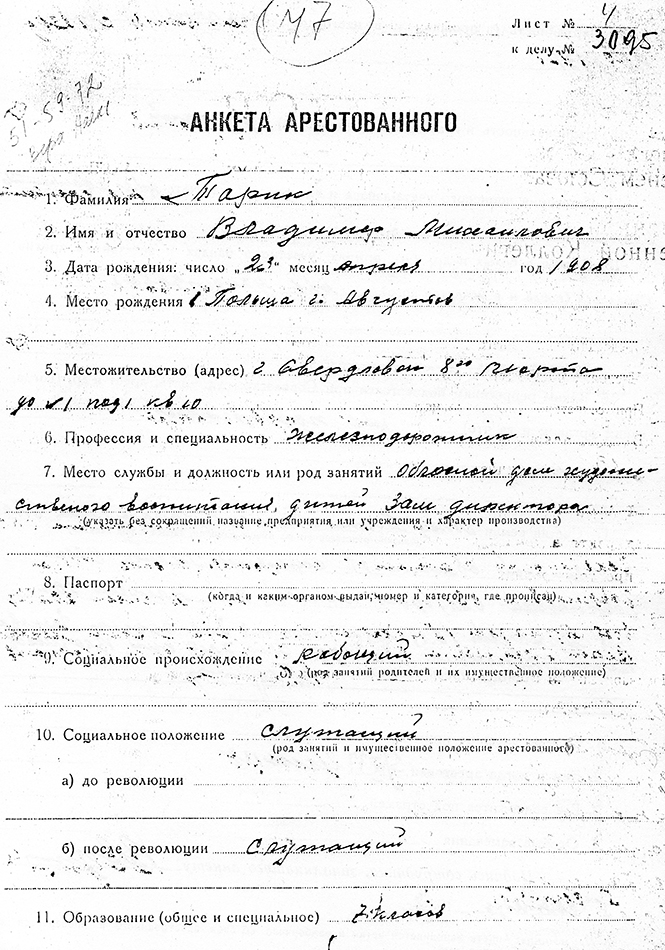 47
Лист № 4
к делу № 3095
51-59-72
АНКЕТА АРЕСТОВАННОГО
1. Фамилия Тарик
2. Имя и отчество Владимир Михайлович
3. Дата рождения: число „23" месяц апреля год 1908
4. Место рождения Польша г. Августов
5. Местожительство (адрес) г Свердловск 8го марта
до №1 под 1 кв 10
6. Профессия и специальность железнодорожник
7. Место службы и должность или род занятий Областной дом художе-
ственого воспитания детей Зам директора
(указать без сокращений название предприятия или учреждения и характер производства)
8. Паспорт
(когда и каким органом выдан, номер и категория, где прописан)
9. Социальное происхождение рабочий
(род занятий родителей и их имущественное положение)
10. Социальное положение служащий
(род занятий и имущественное положение арестованного)
а) до революции
б) после революции служащий
11. Образование (общее и специальное) 7 классов